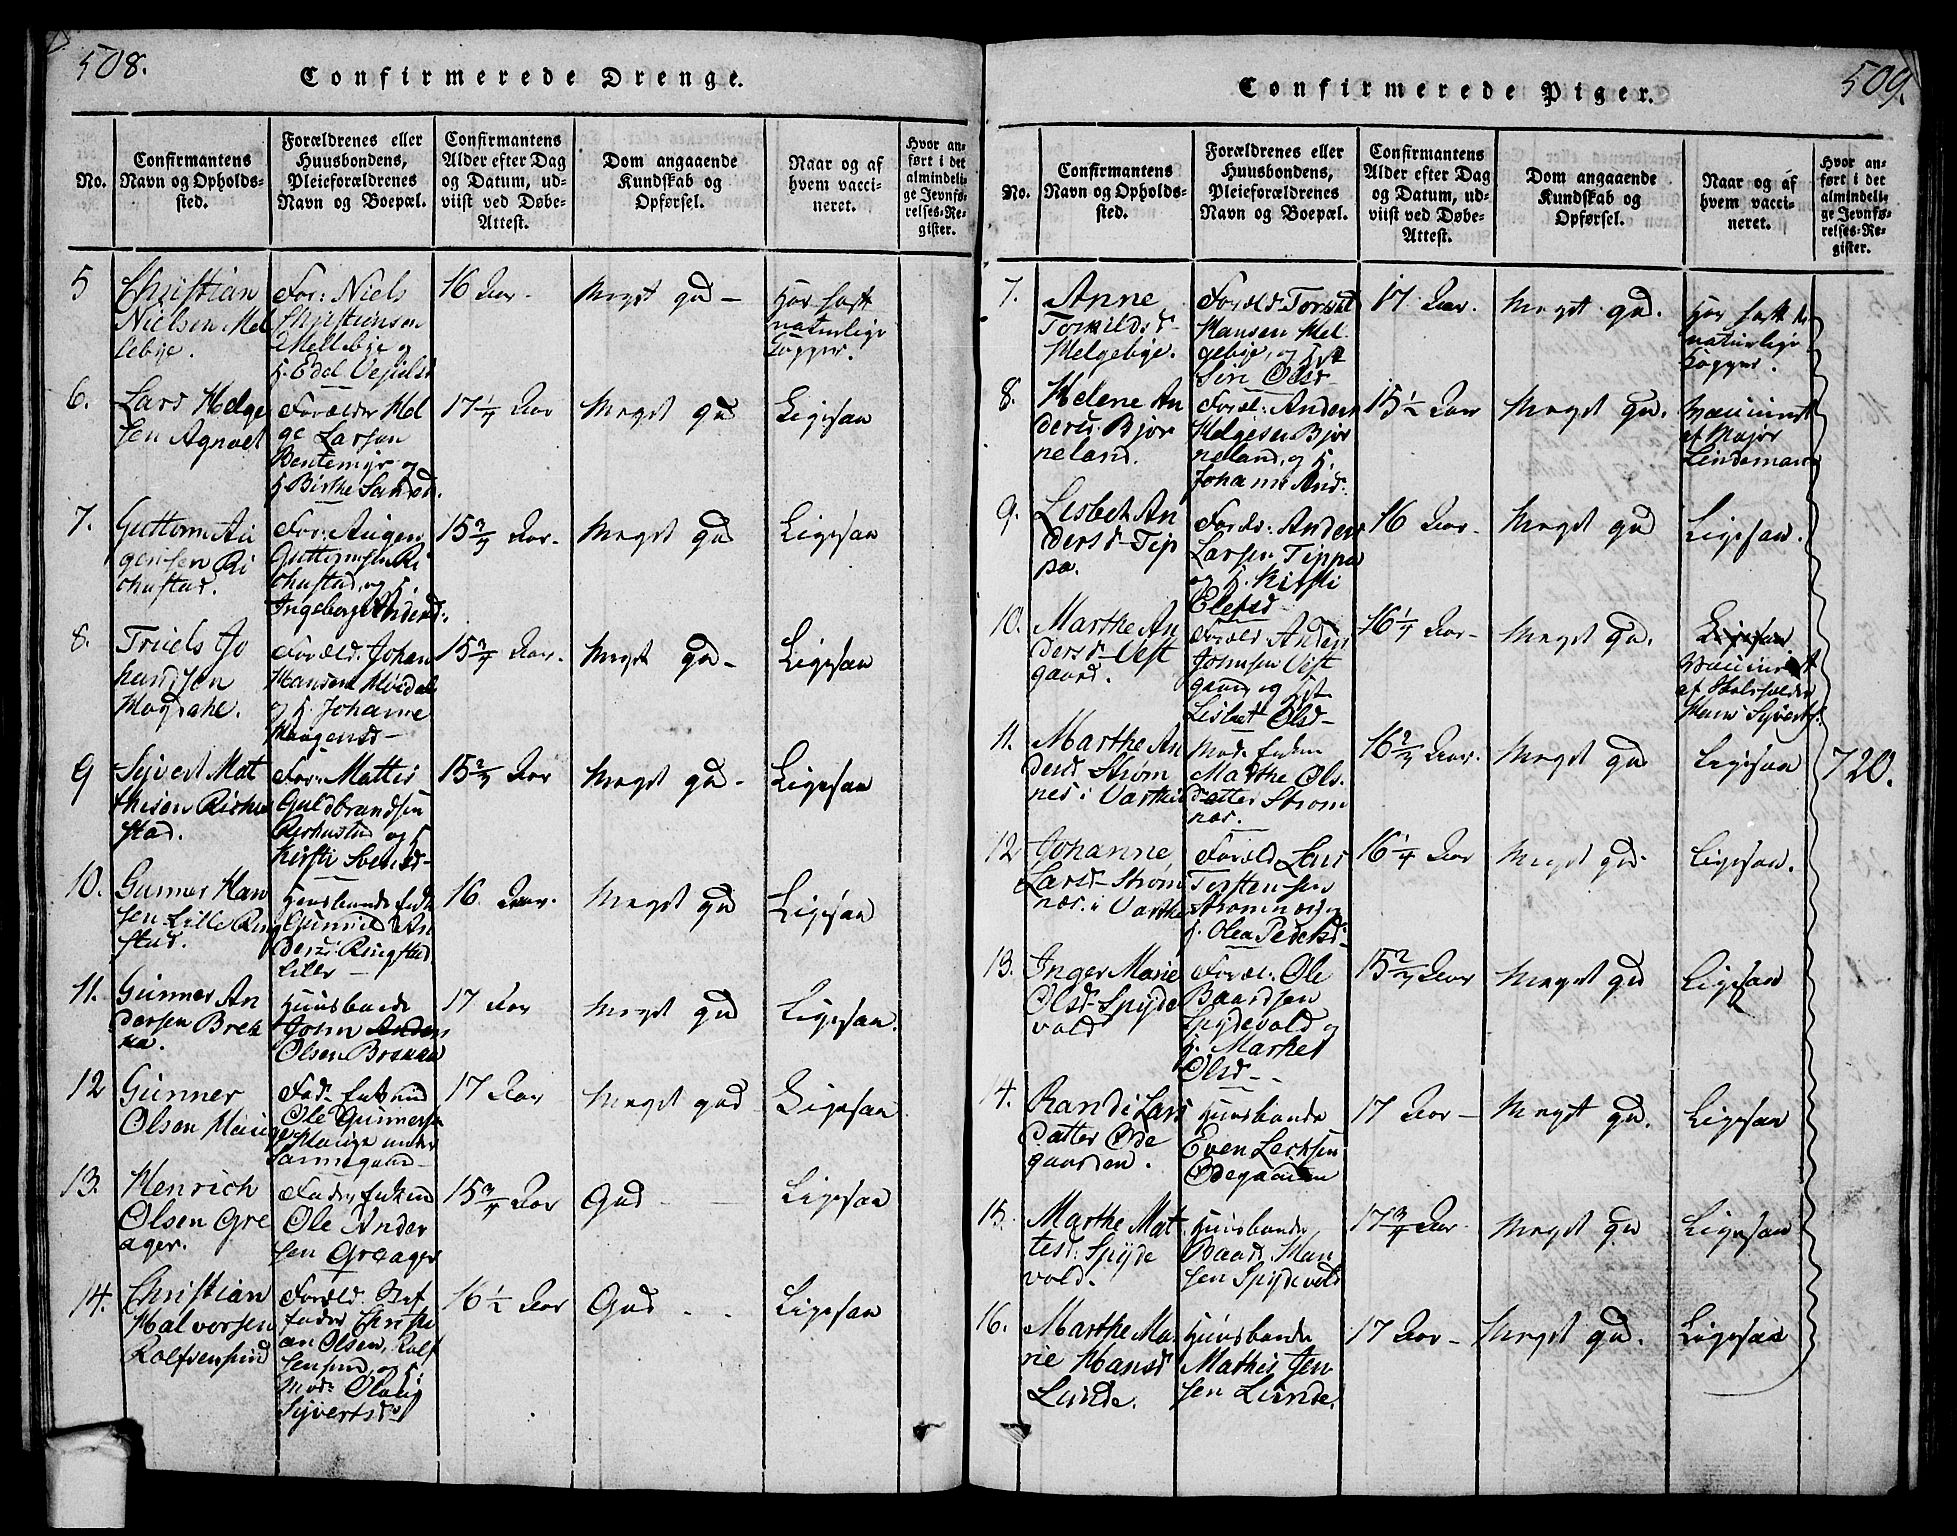 508.
Confirmerede Drenge.
No.
Confirmantens
Navn og Opholds-
sted.
Forældrenes eller
Huusbondens,
Pleieforældrenes
Navn og Boepæl.
Confirmantens
Alder efter Dag
og Datum, ud-
viist ved Døbe-
Attest.
Dom angaaende
Kundskab og
Opførsel.
Naar og af
hvem vacci-
neret.
Hvor an-
ført i det
almindeli-
ge Jevnfø-
relses-Re-
gister.
5
Christian
Nielsen Mel
lebye.
For: Niels
Christiansen
Mellebye og
H. Edel
16 Aar.
Meget god
Har havt
naturlige
Kopper.
6.
Lars Helge
sen Agnvel
Forælder Hel
ge Larsen
Bentemyr og
H Birthe
17 1/4 Aar
Meget god
Ligesaa
7.
Guttorm Au
gensen Ri
chustad.
For: Augen
Guttormsen Ri
chustad, og H.
Ingeborg Andersd:
15 3/4 Aar.
Meget god
Ligesaa
8.
Truels Jo
hansen
Foræld: Johan
Hansen
og H. Johanne
Mogensd
15 3/4 Aar.
Meget god
Ligesaa
9
Syvert Mat
thisen Richu
stad.
For: Mattis
Guldbrandsen
Richustad og H
Kirsti Svensd
15 3/4 Aar
Meget god
Ligesaa
10.
Gunner Han
sen Lille Ring
stad.
Huusbonde Enke
Gunnild An
dersd: Ringstad
Lille
16 Aar.
Meget god
Ligesaa
11.
Gunner An
dersen Brek
ka.
Huusbonde
John Anders
Olsen
17 Aar
Meget god
Ligesaa.
12
Gunner
Olsen Haug
Fad: Enkemd
Ole Gunners
Hauge under
17 Aar
Meget god
Ligesaa
13.
Henrich
Olsen Gre
ager.
Fader Enkem
Ole Ander
sen Greager
15 3/4 Aar
God
Ligesaa
14.
Christian
Halvorsen
Rolfsensund
Foræld. Stef
fader Christi
an Olsen, Rolf
sensund, og
Mod: Olaug
Syvertsd
16 1/2 Aar
God
Ligesaa
509.
Confirmerede Piger.
No.
Confirmantens
Navn og Opholds-
sted.
Forældrenes eller
Huusbondens,
Pleieforældrenes
Navn og Boepæl.
Confirmantens
Alder efter Dag
og Datum, ud-
viist ved Døbe-
Attest.
Dom angaaende
Kundskab og
Opførsel.
Naar og af
hvem vacci-
neret.
Hvor an-
ført i det
almindeli-
ge Jevnfø-
relses-Re-
gister.
7.
Anne
Torkildsd
Helgebye.
Foræld: Torkil
Hansen Hel
gebye, og Hst
Siri Olsd
17 Aar.
Meget god.
Har havt de
naturlige
Kopper.
8.
Helene An
dersd: Bjør
neland.
Foræl: Anders
Helgesen Bjør
neland, og H.
Johanne And:
15 1/2 Aar
Meget god.
Vaccineret
af Major
Lindeman
9.
Lisbet An
dersd Tip
pa.
Foræ: Anders
Larsen Tippa
og H. Kirsti
Elefsd
16 Aar
Meget god
Ligesaa.
10.
Marthe An
dersd Vest
gaard.
Foræld Anders
Johnsen Vest
gaard og Hst
Lisbet Olsd
16 1/4 Aar
Meget god.
Ligesaa
Vaccineret
af
Hans Syverts.
11.
Marthe An
dersd Strøm
nes i
Mod: Enken
Marthe Ols
datter Strøm
nes.
16 3/4 Aar.
Meget god
Ligesaa
720.
12
Johanne
Larsd Strøm
nes. i
Foræld Lars
Torstensen
Strømnes og
H. Olea Pedersd:
16 1/4 Aar
Meget god
Ligesaa.
13.
Inger Marie
Olsd Spyde
vold
Foræl: Ole
Baardsen
Spydevold og
H. Marthe
Olsd
15 3/4 Aar
Meget god
Ligesaa
14.
Randi Lars
datter Øde
gaarden.
Huusbonde
Even
Ødegaarden
17 Aar
Meget god.
Ligesaa
15.
Marthe Mat
tesd: Spyde
vold.
Huusbonde
Baard Han
sen Spydevold
17 3/4 Aar.
Meget god
Ligesaa
16.
Marthe Ma
rie Hansd
Lunde.
Huusbonde
Mathis Jen
sen Lunde.
17 Aar
Meget god.
Ligesaa